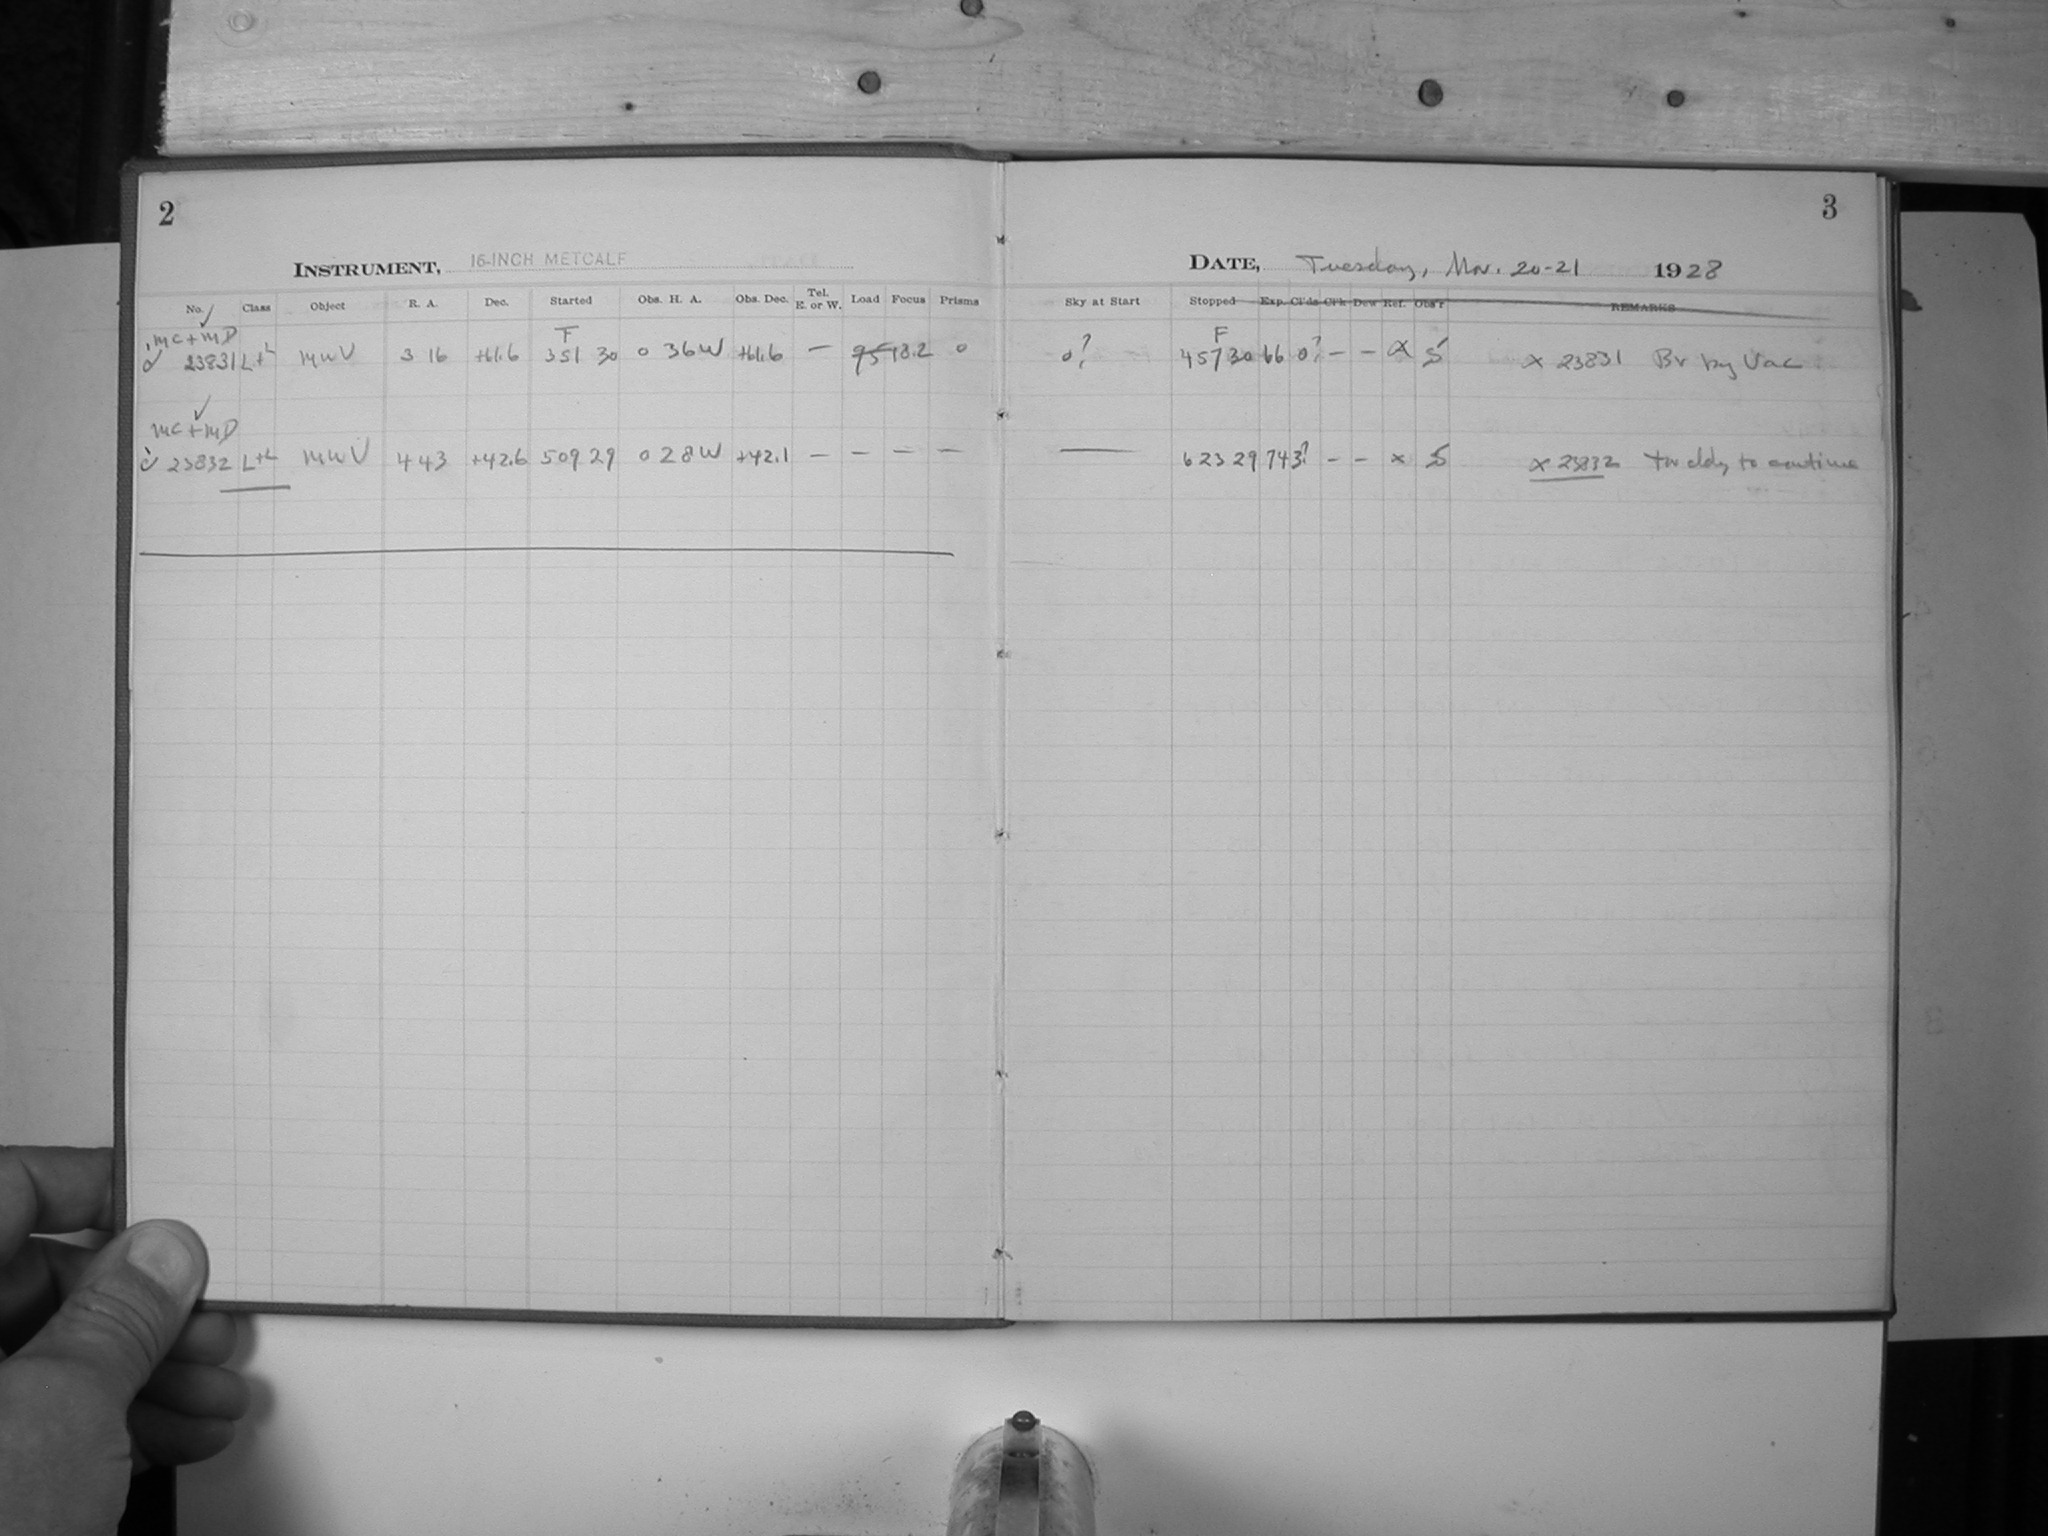 2
INSTRUMENT, 16-INCH METCALF
No. Class Object R. A. Dec. Started Obs. H. A. Obs. Dec. Tel. E. or W. Load Focus Prisms
MC + MD F
23831 L+L MWV 3 16 +61.6 351 30 0 36W +61.6 — 95 13.2 0
MC + MD
23832 L+L MWV 4 43 +42.6 509 29 0 28W +42.1 — — — —
3
DATE, Tuesday, Nov. 20-21 1928
Sky at Start Stopped Exp. Cl'ds Cl'k Dew Ref. Obs'r REMARKS
F
0? 457 30 66 0? — — X S x 23831 Br by Vac
— 623 29 74 3? — — x S x 23832 Too cldy to continue